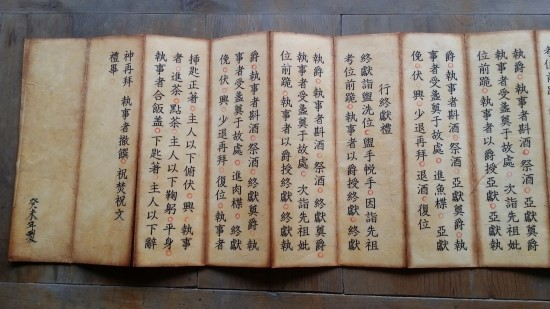 執爵○執事者斟酒○祭酒○亞獻奠爵○執
事者受盞奠于故處○次詣先祖妣
位前跪○執事者以爵授亞獻○亞獻執
爵○執事者斟酒○祭酒○亞獻奠爵○執
事者受盞奠于故處○進魚楪○亞獻
俛○伏○興○少退再拜○退酒○復位
行終獻禮
終獻詣盥洗位○盥手帨手○因詣先祖
考位前跪○執事者以爵授終獻○終獻
執爵○執事者斟酒○祭酒○終獻奠爵○執
事者受盞奠于故處○次詣先祖妣
位前跪○執事者以爵授終獻○終獻執
爵○執事者斟酒○祭酒○終獻奠爵○執
事者受盞奠于故處○進肉楪○終獻
俛○伏○興○少退再拜○復位○執事者
揷匙正著○主人以下俯伏○興○執事
者 進茶○點茶 主人以下鞠躬○平身○
執事者合飯盖○下匙著○主人以下辭
神再拜 執事者撤饌○祝焚祝文
禮畢
癸未年製